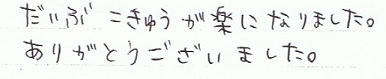 だいぶ こきゅうが楽になりました。
ありがとうございました。